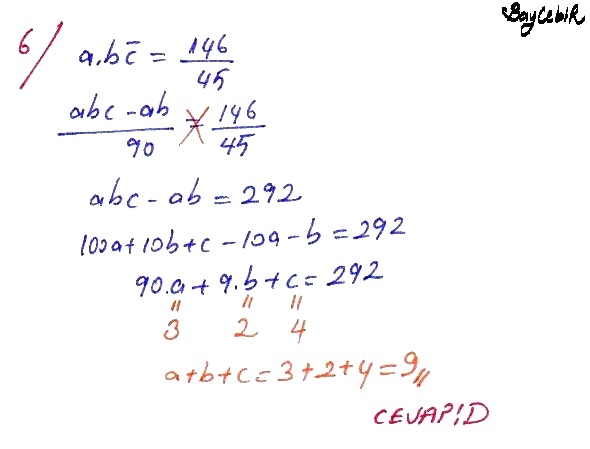 BaycebiR
6/ a.bc̅ = 146/45
abc - ab / 90 = 146/45
abc - ab = 292
100a + 10b + c - 10a - b = 292
90.a + 9.b + c = 292
" " "
3 2 4
a + b + c = 3 + 2 + 4 = 9//
CEVAP!D